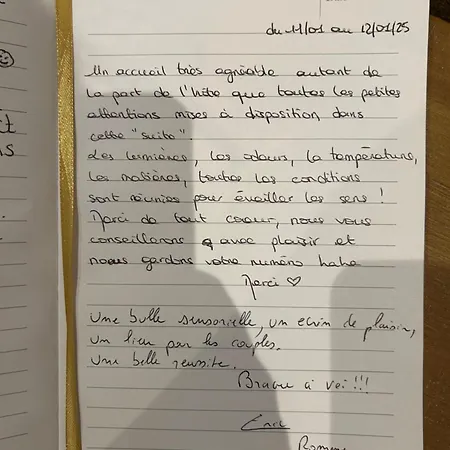 t
ns
du 11/01 au 12/01/25
Un accueil très agréable autant de
la part de l'hôte que toutes les petites
attentions mises à disposition dans
cette "suite"
Les lumières, les odeurs, la température,
les matières, toutes les conditions
sont réunies pour éveiller les sens !
Merci de tout coeur, nous vous
conseillerons avec plaisir et
nous gardons votre numéro haha
Merci ♡
Une bulle sensorielle, un ecrin de plaisir,
un lieu pour les couples.
Une belle reussite.
Bravo à